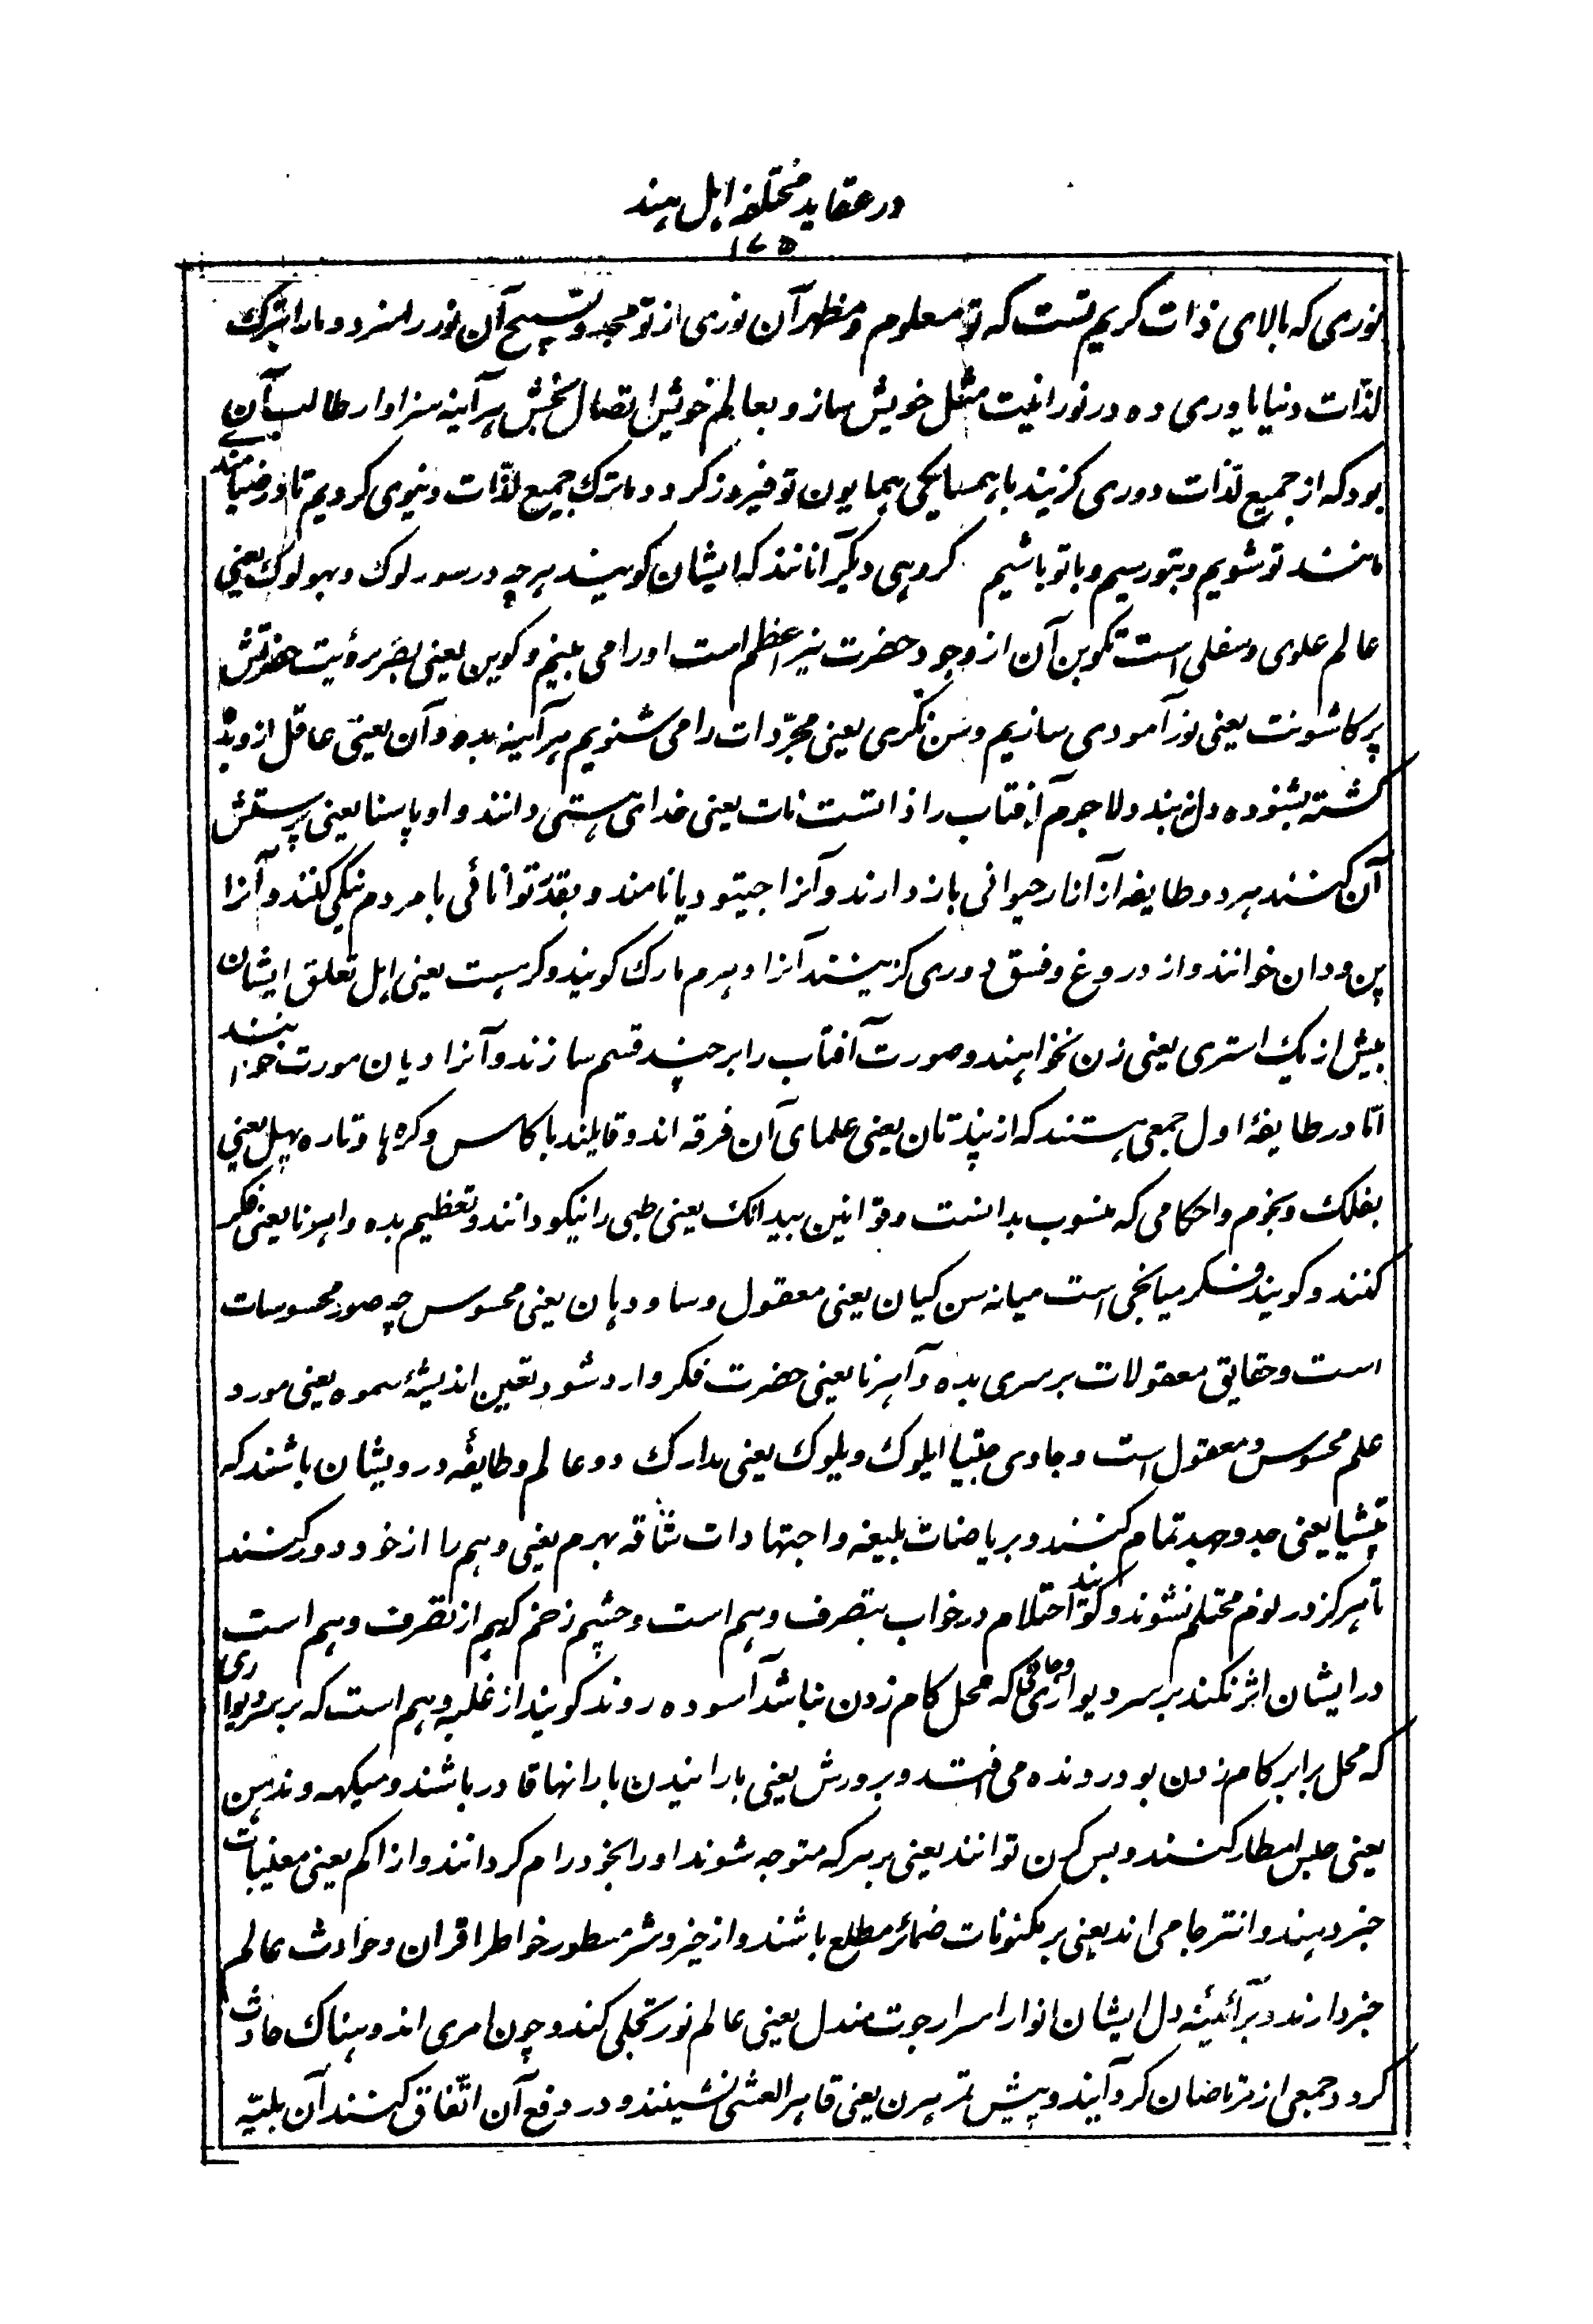 در عقاید مختلفه اهل هند
۱۷۵
نوری که بالای ذات کریم تست که تو معلوم و مظهر آن نوری از تو مجد و تسبیح آن نور را سزد و ما را بترک
لذّات دنیا یاوری ده در نورانیت مثل خویش ساز و بعالم خویش اتصال بخش هر آینه سزاوار طالب آن
بود که از جمیع لذّات دوری کزیند با بهمسایکی همایون تو فیروز کردد ما ترک جمیع لذّات دنیوی کردیم تا در ضیامندی
مانند تو شویم و بتو رسیم و با تو باشیم کروهی دیکر آنانند که ایشان کویند هر چه در سور لوک و بهو لوک یعنی
عالم علوی و سفلی است تکوین آن از وجود حضرت نیر اعظم است او را می بینیم و کوین یعنی بصر برؤیت حضرتش
پرکاشونت یعنی نور آمودی سازیم و سن نکری یعنی مجرّدات را می شنویم هر آینه بده وآن یعنی عاقل از دید
کشته بشنوده دل نبندد لاجرم آفتاب را ذاتست نات یعنی خدای هستی دانند و اوپاسنا یعنی پرستش
آن کنند هر دو طایفه از آزار حیوانی باز دارند و آنرا جیتو دیا نامند و بقدر توانائی با مردم نیکی کنند و آنرا
پن و دان خوانند و از دروغ و فسق دوری کزینند آنرا دهرم مارک کویند و کرهست یعنی اهل تعلق ایشان
بیش از یک استری یعنی زن نخواهند و صورت آفتاب را بر چند قسم سازند و آنرا دیان مورت خوانند
امّا در طایفهٔ اول جمعی هستند که از پندتان یعنی علمای آن فرقه اند و قایلند با کاس و کره ها و تاره پهل یعنی
بفلک و نجوم و احکامی که منسوب بدانست و قوانین بیدانک یعنی طبی را نیکو دانند و تعظیم بده واهرنا یعنی فکر
کنند و کویند فکر میانجی است میانه سن کیان یعنی معقول و ساودهان یعنی محسوس چه صور محسوسات
است و حقایق معقولات بر سری بده وآهرنا یعنی حضرت فکر وارد شود تعین اندیشهٔ سموه یعنی مورد
علم محسوس و معقول است و جاوی ایلوک و پلوک یعنی مدارک دو عالم و طایفهٔ درویشان باشند که
تپشیا یعنی جد و جهد تمام کنند و بر ریاضات بلیغه و اجتهادات شاقه بهرم یعنی وهم را از خود دور کنند
تا هرکز در نوم محتلم نشوند و کویند احتلام در خواب بتصرف وهم است و چشم زخم کهم از تصرف وهم است
در ایشان اثر نکند بر سر دیواری و جائی که محل کام زدن نباشد آسوده روند کویند از غلبه وهم است که بر سر دیواری
که محل برابر کام زدن بود رونده می فتد و برورش یعنی بارانیدن بارانها قادر باشند و میکهه وندهن
یعنی حبس امطار کنند و بس کرن توانند یعنی بر هر که متوجه شوند او را بخود رام کردانند و از اکم یعنی مغیبات
خبر دهند و انتر جامی اند یعنی بر مکنونات ضمائر مطلع باشند و از خیر و شر مسطور خواطر اقران و حوادث عالم
خبر دارند و بر آئینهٔ دل ایشان انوار اسرار جوت مندل یعنی عالم نور تجلی کند و چون امری اندوهناک حادث
کردد جمعی از مرتاضان کرد آیند و پیش تر هرن یعنی قاهر العشی نشینند و در دفع آن اتّفاق کنند آن بلیّه